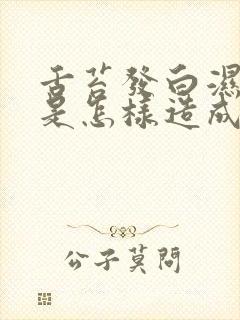 舌苔發白濕
是怎樣造成
公子莫問